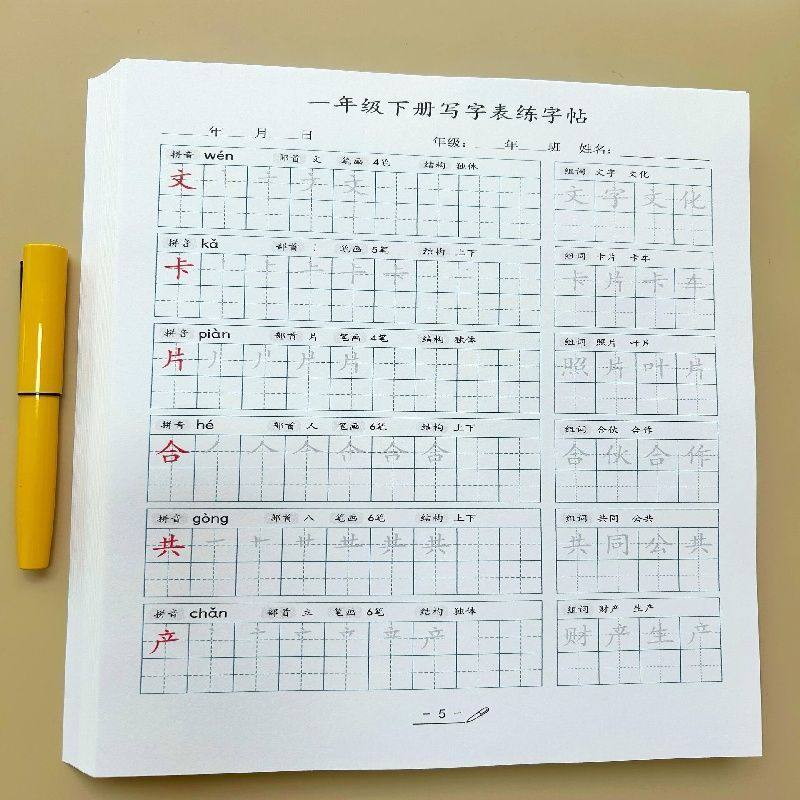 一年级下册写字表练字帖
年 月 日 年级： 年 班 姓名：
拼音 wén 部首 文 笔画 4笔 结构 独体
组词 文字 文化
文 文
文 字 文 化
拼音 kǎ 部首 笔画 5笔 结构 上下
组词 卡片 卡车
卡 卡
卡 片 卡 车
拼音 piàn 部首 片 笔画 4笔 结构 独体
组词 照片 叶片
片 片
照 片 叶 片
拼音 hé 部首 人 笔画 6笔 结构 上下
组词 合伙 合作
合 合
合 伙 合 作
拼音 gòng 部首 八 笔画 6笔 结构 上下
组词 共同 公共
共 共
共 同 公 共
拼音 chǎn 部首 立 笔画 6笔 结构 独体
组词 财产 生产
产 产
财 产 生 产
- 5 -